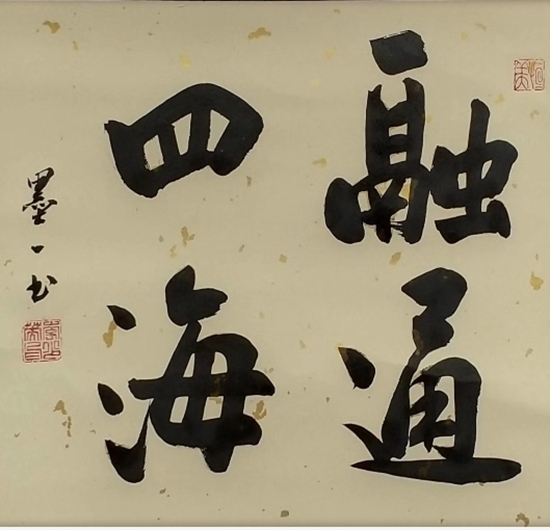 融通
四海
墨一书